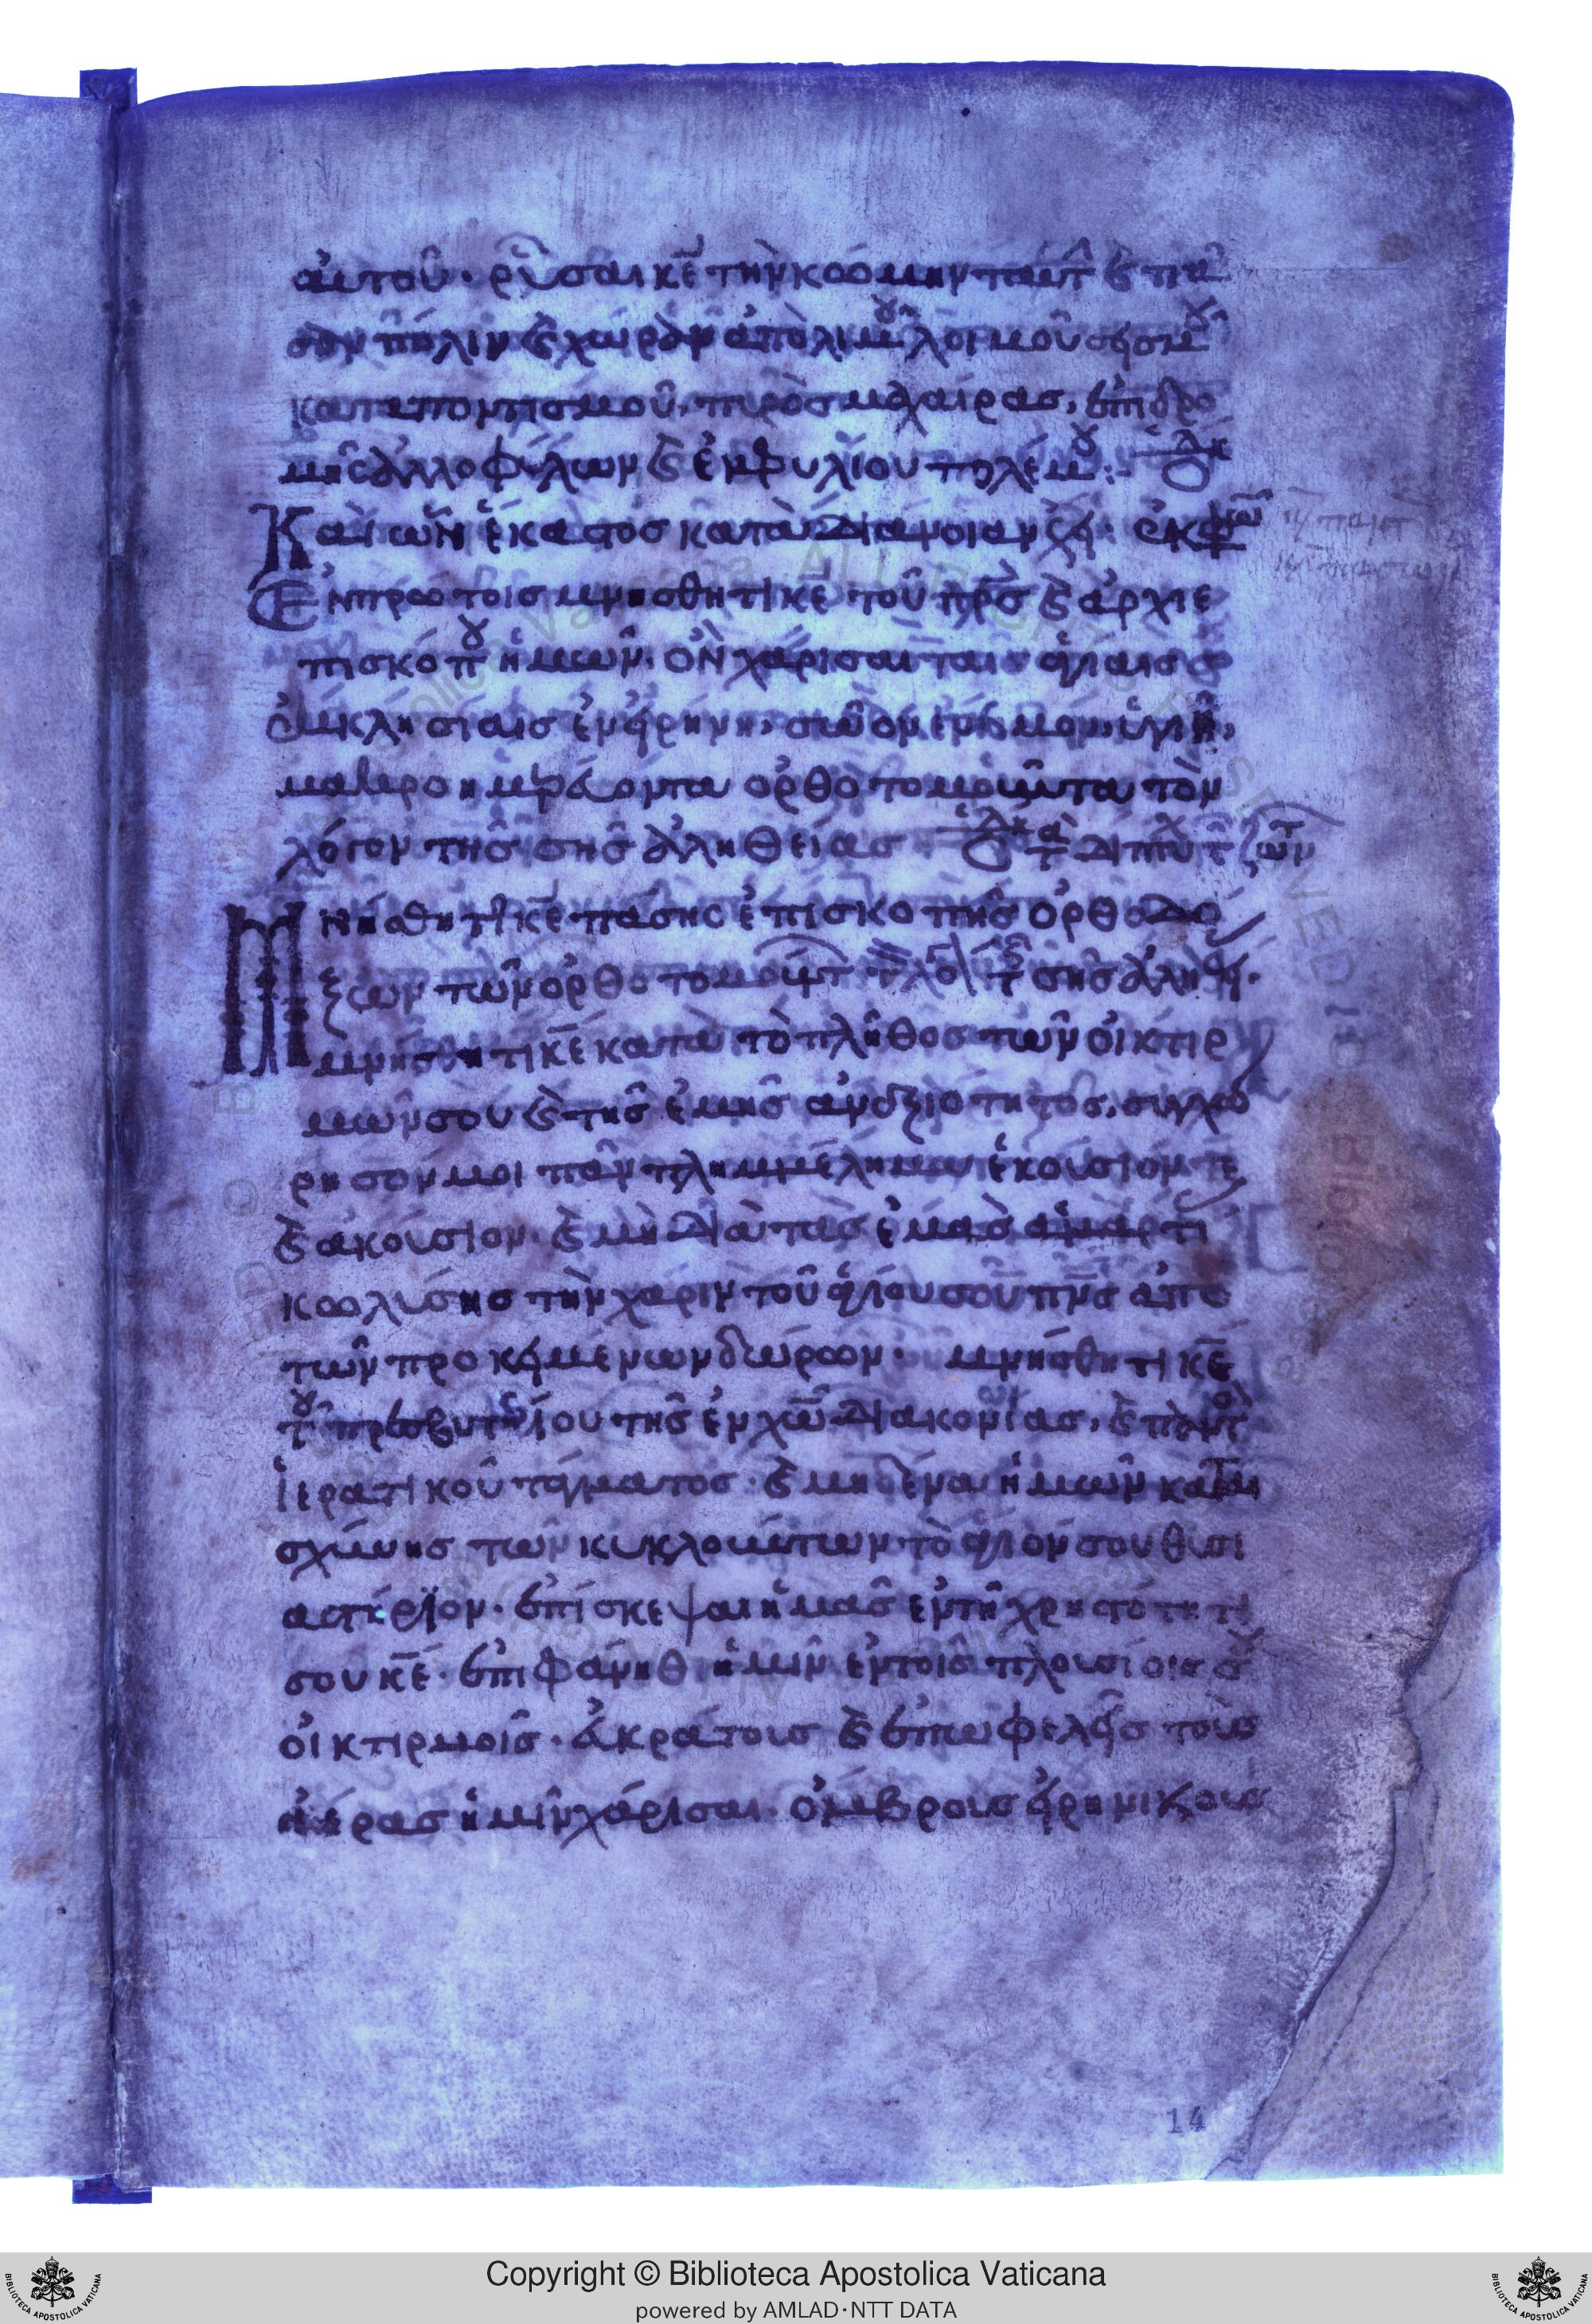 αὐτοῦ · ῥῦσαι κε τὴν κώμην ταύτ
πόλιν χώραν ἀπὸ λιμοῦ λοιμοῦ σεισμοῦ
καταποντισμοῦ, πυρὸς μαχαίρας, ἐπιδρο
μῆς ἀλλοφύλων καὶ ἐμφυλίου πολέμου :
Καὶ ὧν ἕκαστος κατὰ διάνοιαν ἔχει · ἐκφω
Ἐν πρώτοις μνήσθητι κε τοῦ πρς καὶ ἀρχιε
πισκόπου ἡμῶν · ὃν χάρισαι ταῖς ἁγίαις σου
ἐκκλησίαις ἐν εἰρήνῃ, σῶον ἔντιμον, ὑγιῆ,
μακροημερεύοντα ὀρθοτομοῦντα τὸν
λόγον τῆς σῆς ἀληθείας
Μνήσθητι κε πάσης ἐπισκοπῆς ὀρθοδό
ξων τῶν ὀρθοτομούντ τ λόγ τ σῆς ἀληθεί ·
μνήσθητι κε κατὰ τὸ πλῆθος τῶν οἰκτιρ
μῶν σου καὶ τῆς ἐμῆς ἀναξιότητος, συγχώ
ρησόν μοι πᾶν πλημμέλημα ἑκούσιόν τε
καὶ ἀκούσιον · καὶ μὴ διὰ τὰς ἐμὰς ἁμαρτί
κωλύσῃς τὴν χάριν τοῦ ἁγίου σου πνς ἀπὸ
τῶν προκειμένων δώρων · μνήσθητι κε
τοῦ πρεσβυτερίου τῆς ἐν χω διακονίας, καὶ παντὸς
ἱερατικοῦ τάγματος · καὶ μηδένα ἡμῶν καται
σχύνῃς τῶν κυκλούντων τὸ ἅγιόν σου θυσι
αστήριον · ἐπίσκεψαι ἡμᾶς ἐν τῇ χρηστότητί
σου κε · ἐπιφάνηθι ἡμῖν ἐν τοῖς πλουσίοις σου
οἰκτιρμοῖς · εὐκράτους καὶ ἐπωφελεῖς τοὺς
ἀέρας ἡμῖν χάρισαι · ὄμβρους εἰρηνικοὺς
14
Copyright © Biblioteca Apostolica Vaticana
powered by AMLAD·NTT DATA